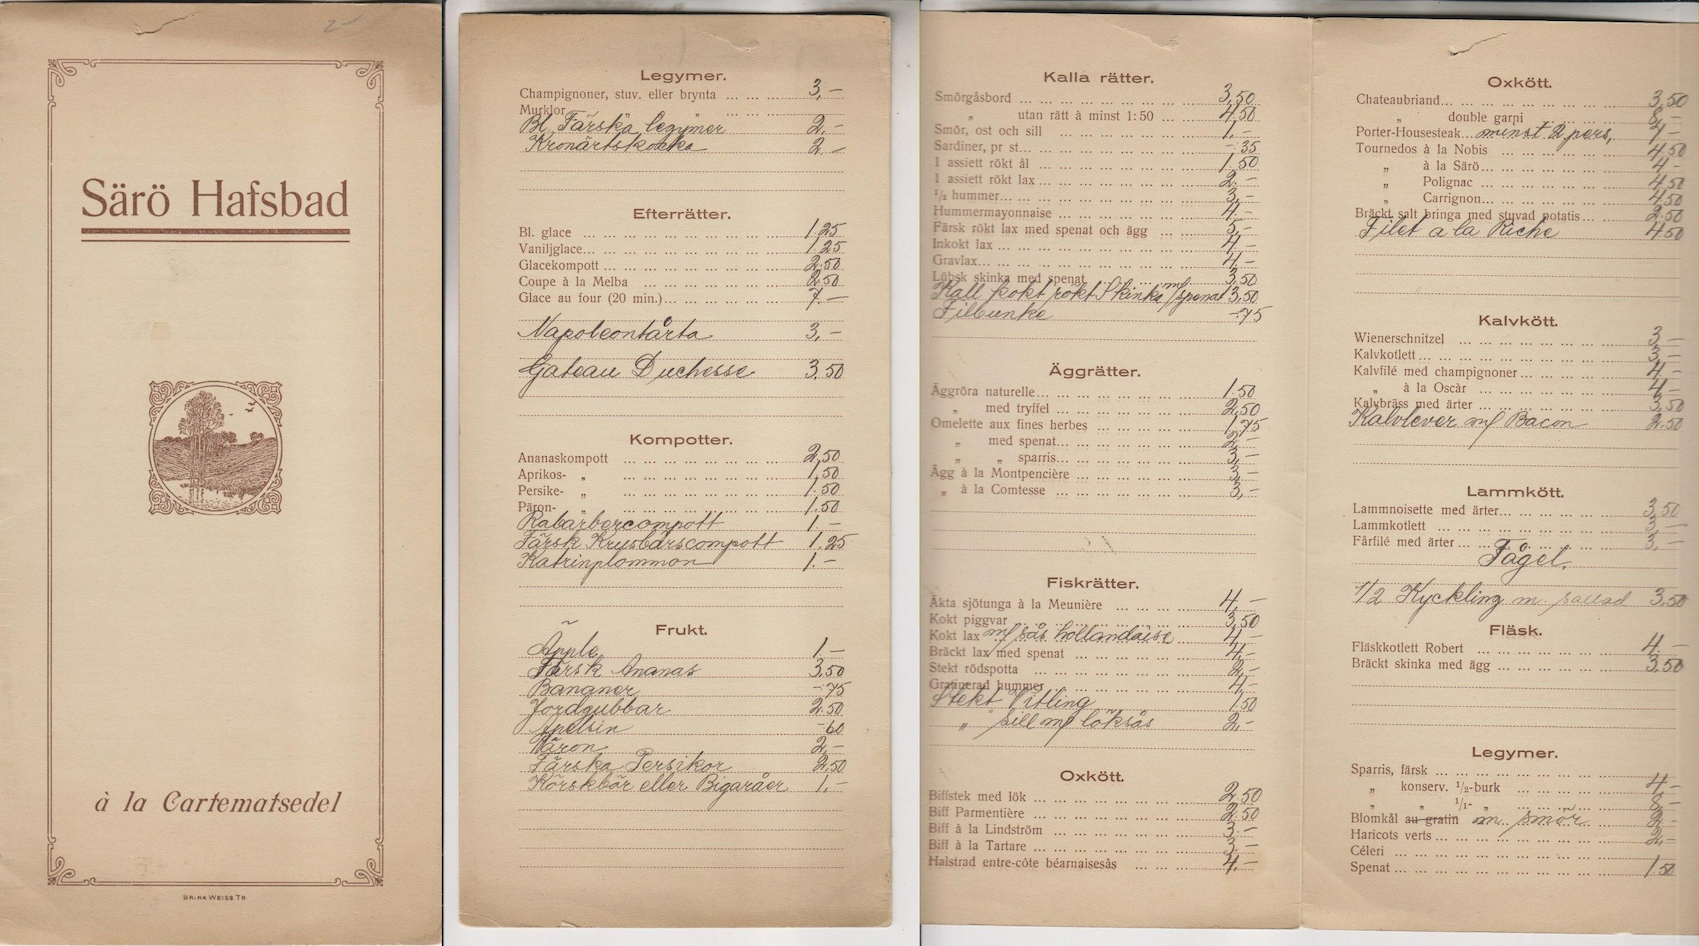 2-
Särö Hafsbad
à la Cartematsedel
BRINA WEISS TR.
Legymer.
Champignoner, stuv. eller brynta ... ... ... 3,-
Murklor „ „ ... ... ...
Bl. Färska legymer 2,-
Kronärtskocka 2,-
Efterrätter.
Bl. glace ... 1.25
Vaniljglace... 1,25
Glacekompott ... 2.50
Coupe à la Melba ... 2.50
Glace au four (20 min.)... 7 -
Napoleontårta 3,-
Gateau Duchesse 3,50
Kompotter.
Ananaskompott ... 2,50
Aprikos- „ ... 1,50
Persike- „ ... 1.50
Päron- „ ... 1.50
Rabarbercompott 1.-
Färsk Krusbärscompott 1.25
Katrinplommon 1.-
Frukt.
Äpple 1.-
Färsk Ananas 3.50
Bananer -.75
Jordgubbar 2.50
Apelsin -60
Päron 2,-
Färska Persikor 2,50
Körskbär eller Bigaråer 1,-
Kalla rätter.
Smörgåsbord ... 3,50
„ utan rätt à minst 1:50 ... 4,50
Smör, ost och sill ... 1,-
Sardiner, pr st... -.35
1 assiett rökt ål ... 1,50
1 assiett rökt lax ... 2,-
1/2 hummer... 3,-
Hummermayonnaise ... 4,-
Färsk rökt lax med spenat och ägg ... 5,-
Inkokt lax ... 4,-
Gravlax... 4,-
Lübsk skinka med spenat 3,50
Kall kokt rökt Skinka m/spenat 3,50
Filbunke -.75
Äggrätter.
Äggröra naturelle... 1.50
„ med tryffel ... 2,50
Omelette aux fines herbes ... 1,75
„ med spenat... 2,-
„ „ sparris... 3,-
Ägg à la Montpencière ... 3,-
„ à la Comtesse ... 3,-
Fiskrätter.
Äkta sjötunga à la Meunière ... 4,-
Kokt piggvar ... 3,50
Kokt lax m/ sås hollandaise 4,-
Bräckt lax med spenat ... 4,-
Stekt rödspotta ... 2,-
Gratinerad hummer ... 4,-
Stekt Vitling 1.50
„ sill m/ löksås 2,-
Oxkött.
Biffstek med lök ... 2,50
Biff Parmentière ... 2.50
Biff à la Lindström ... 3,-
Biff à la Tartare ... 3,-
Halstrad entre-côte béarnaisesås ... 4,-
Oxkött.
Chateaubriand... 3,50
„ double garni 8,-
Porter-Housesteak... minst 2 pers, 7-
Tournedos à la Nobis ... 4,50
„ à la Särö... 4-
„ Polignac ... 4,50
„ Carrignon... 4,50
Bräckt salt bringa med stuvad potatis... 2.50
Filet a la Riche 4.50
Kalvkött.
Wienerschnitzel ... 3-
Kalvkotlett ... 3,-
Kalvfilé med champignoner ... 4-
„ à la Oscàr ... 4-
Kalvbräss med ärter ... 3,50
Kalvlever m/ Bacon 2.50
Lammkött.
Lammnoisette med ärter... 3,50
Lammkotlett ... 3,-
Fårfilé med ärter ... 3,-
Fågel.
1/2 Kyckling m. sallad 3,50
Fläsk.
Fläskkotlett Robert ... 4,-
Bräckt skinka med ägg ... 3,50
Legymer.
Sparris, färsk ...
„ konserv. 1/2-burk ... 4-
„ „ 1/1- „ ... 8-
Blomkål au gratin m. smör 2-
Haricots verts ... 2,-
Céleri ...
Spenat ... 1.50